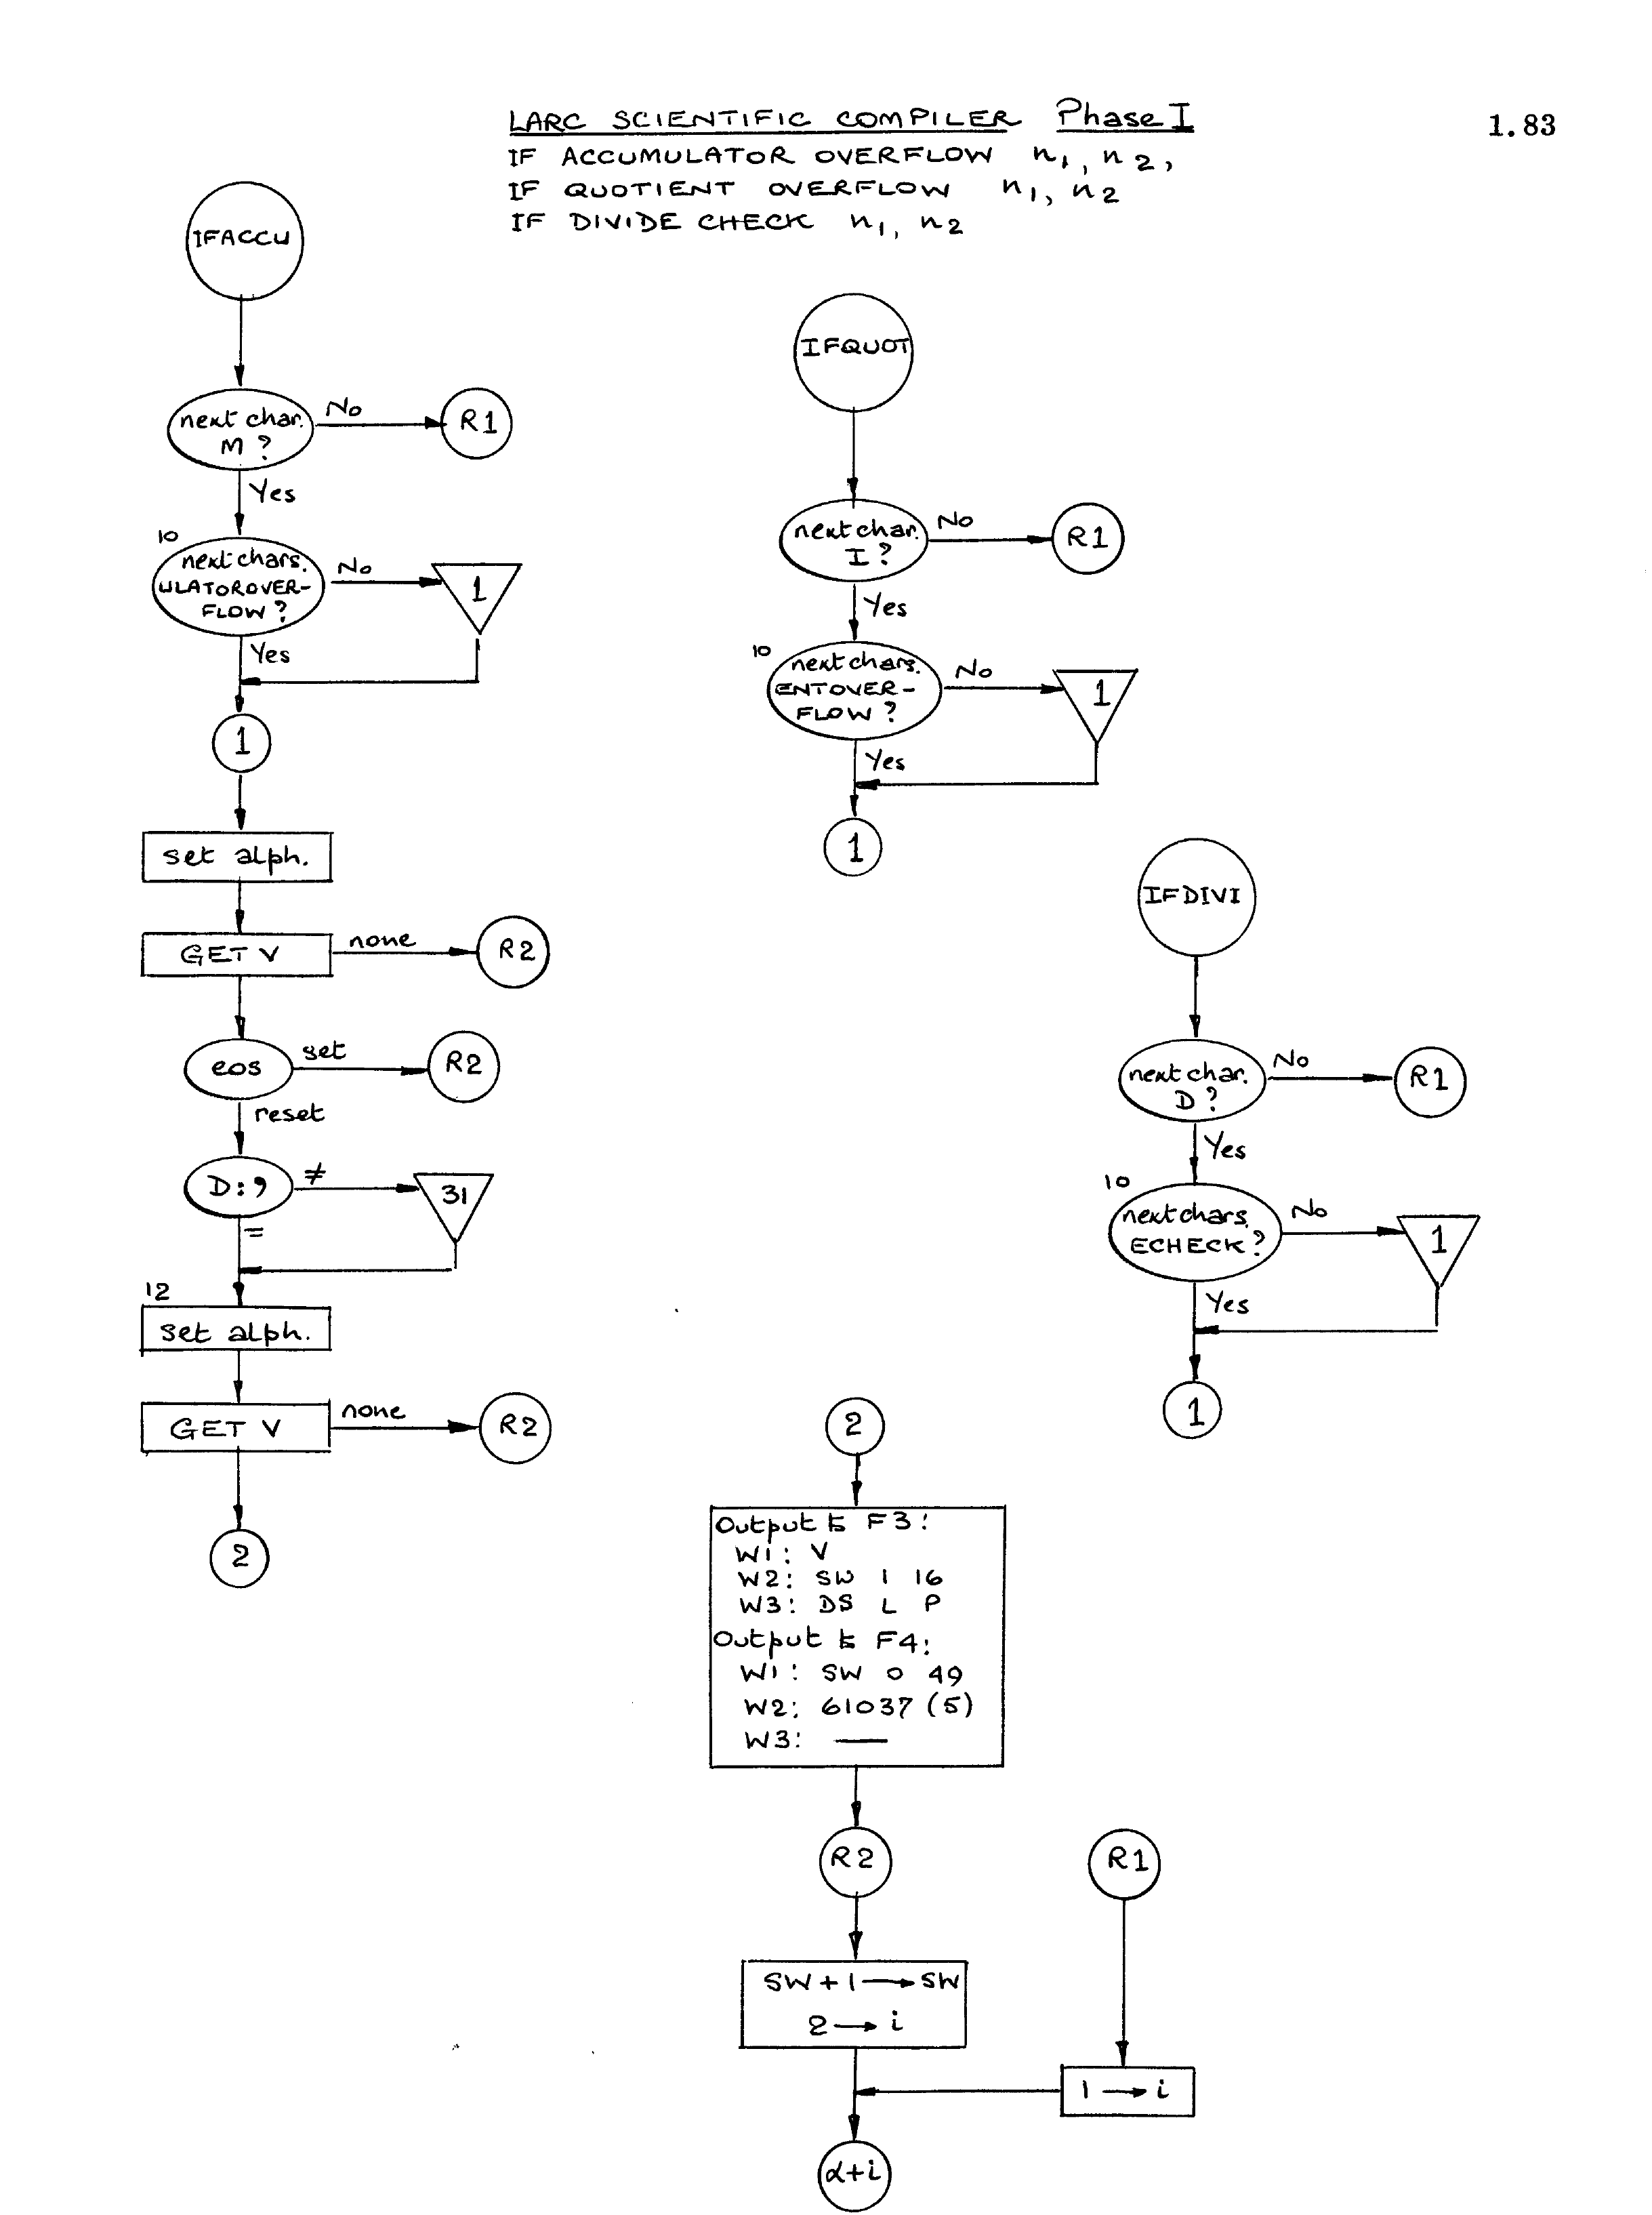 LARC SCIENTIFIC COMPILER Phase I
1.83
IF ACCUMULATOR OVERFLOW n1, n2,
IF QUOTIENT OVERFLOW n1, n2
IF DIVIDE CHECK n1, n2
IFACCU
next char.
M ?
No
R1
Yes
10
next chars.
ULATOROVER-
FLOW ?
No
1
Yes
1
set alph.
GET V
none
R2
eos
set
R2
reset
D : ,
≠
31
=
12
set alph.
GET V
none
R2
2
IFQUOT
next char.
I ?
No
R1
Yes
10
next chars.
ENTOVER-
FLOW ?
No
1
Yes
1
IFDIVI
next char.
D ?
No
R1
Yes
10
next chars.
ECHECK ?
No
1
Yes
1
2
Output to F3:
W1: V
W2: SW 1 16
W3: DS L P
Output to F4:
W1: SW 0 49
W2: 61037 (5)
W3: —
R2
SW + 1 → SW
2 → i
R1
1 → i
α+i